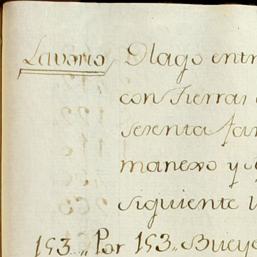 Lavorio Dlago entr
con Tierras
sesenta fan
manexo y
siguiente
153. Por 153. Bueye